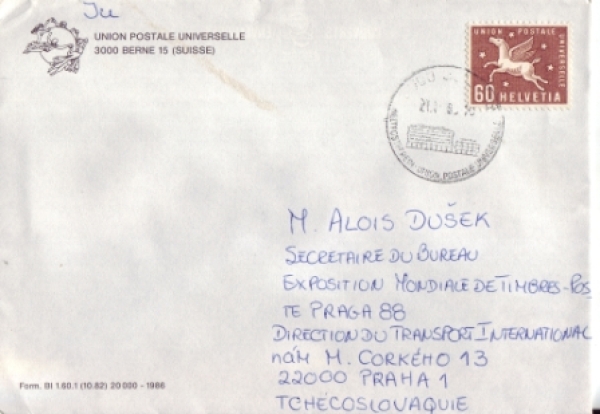 Ju
UNION POSTALE UNIVERSELLE
3000 BERNE 15 (SUISSE)
UNION POSTALE
UNIVERSELLE
60 HELVETIA
UNION POSTALE
M. ALOIS DUŠEK
SECRETAIRE DU BUREAU
EXPOSITION MONDIALE DE TIMBRES-POS
TE PRAGA 88
DIRECTION DU TRANSPORT INTERNATIONAL
NÁM M. CORKÉHO 13
22000 PRAHA 1
TCHÉCOSLOVAQUIE
Form. BI 1.60.1 (10.82) 20 000 - 1986